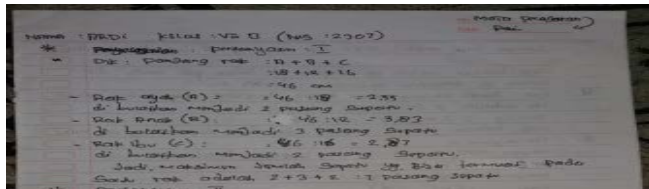 - Mata Pelajaran
Nama : ARDI Kelas : VB D (NIS : 2907)
* Penyelesaian : pertanyaan : I
Dik : Panjang rak : A + B + C
: 18 + 12 + 16
= 46 cm
- Rak ayah (A) : = 46 : 18 = 2,55
di bulatkan menjadi 2 pasang sepatu.
- Rak Anak (B) : = 46 : 12 = 3,83
di bulatkan menjadi 3 pasang sepatu
- Rak Ibu (C) : = 46 : 16 = 2,87
di bulatkan menjadi 2 pasang sepatu.
Jadi, maksimum jumlah sepatu yg bisa termuat pada
rak adalah 2 + 3 + 2 : 7 pasang sepatu